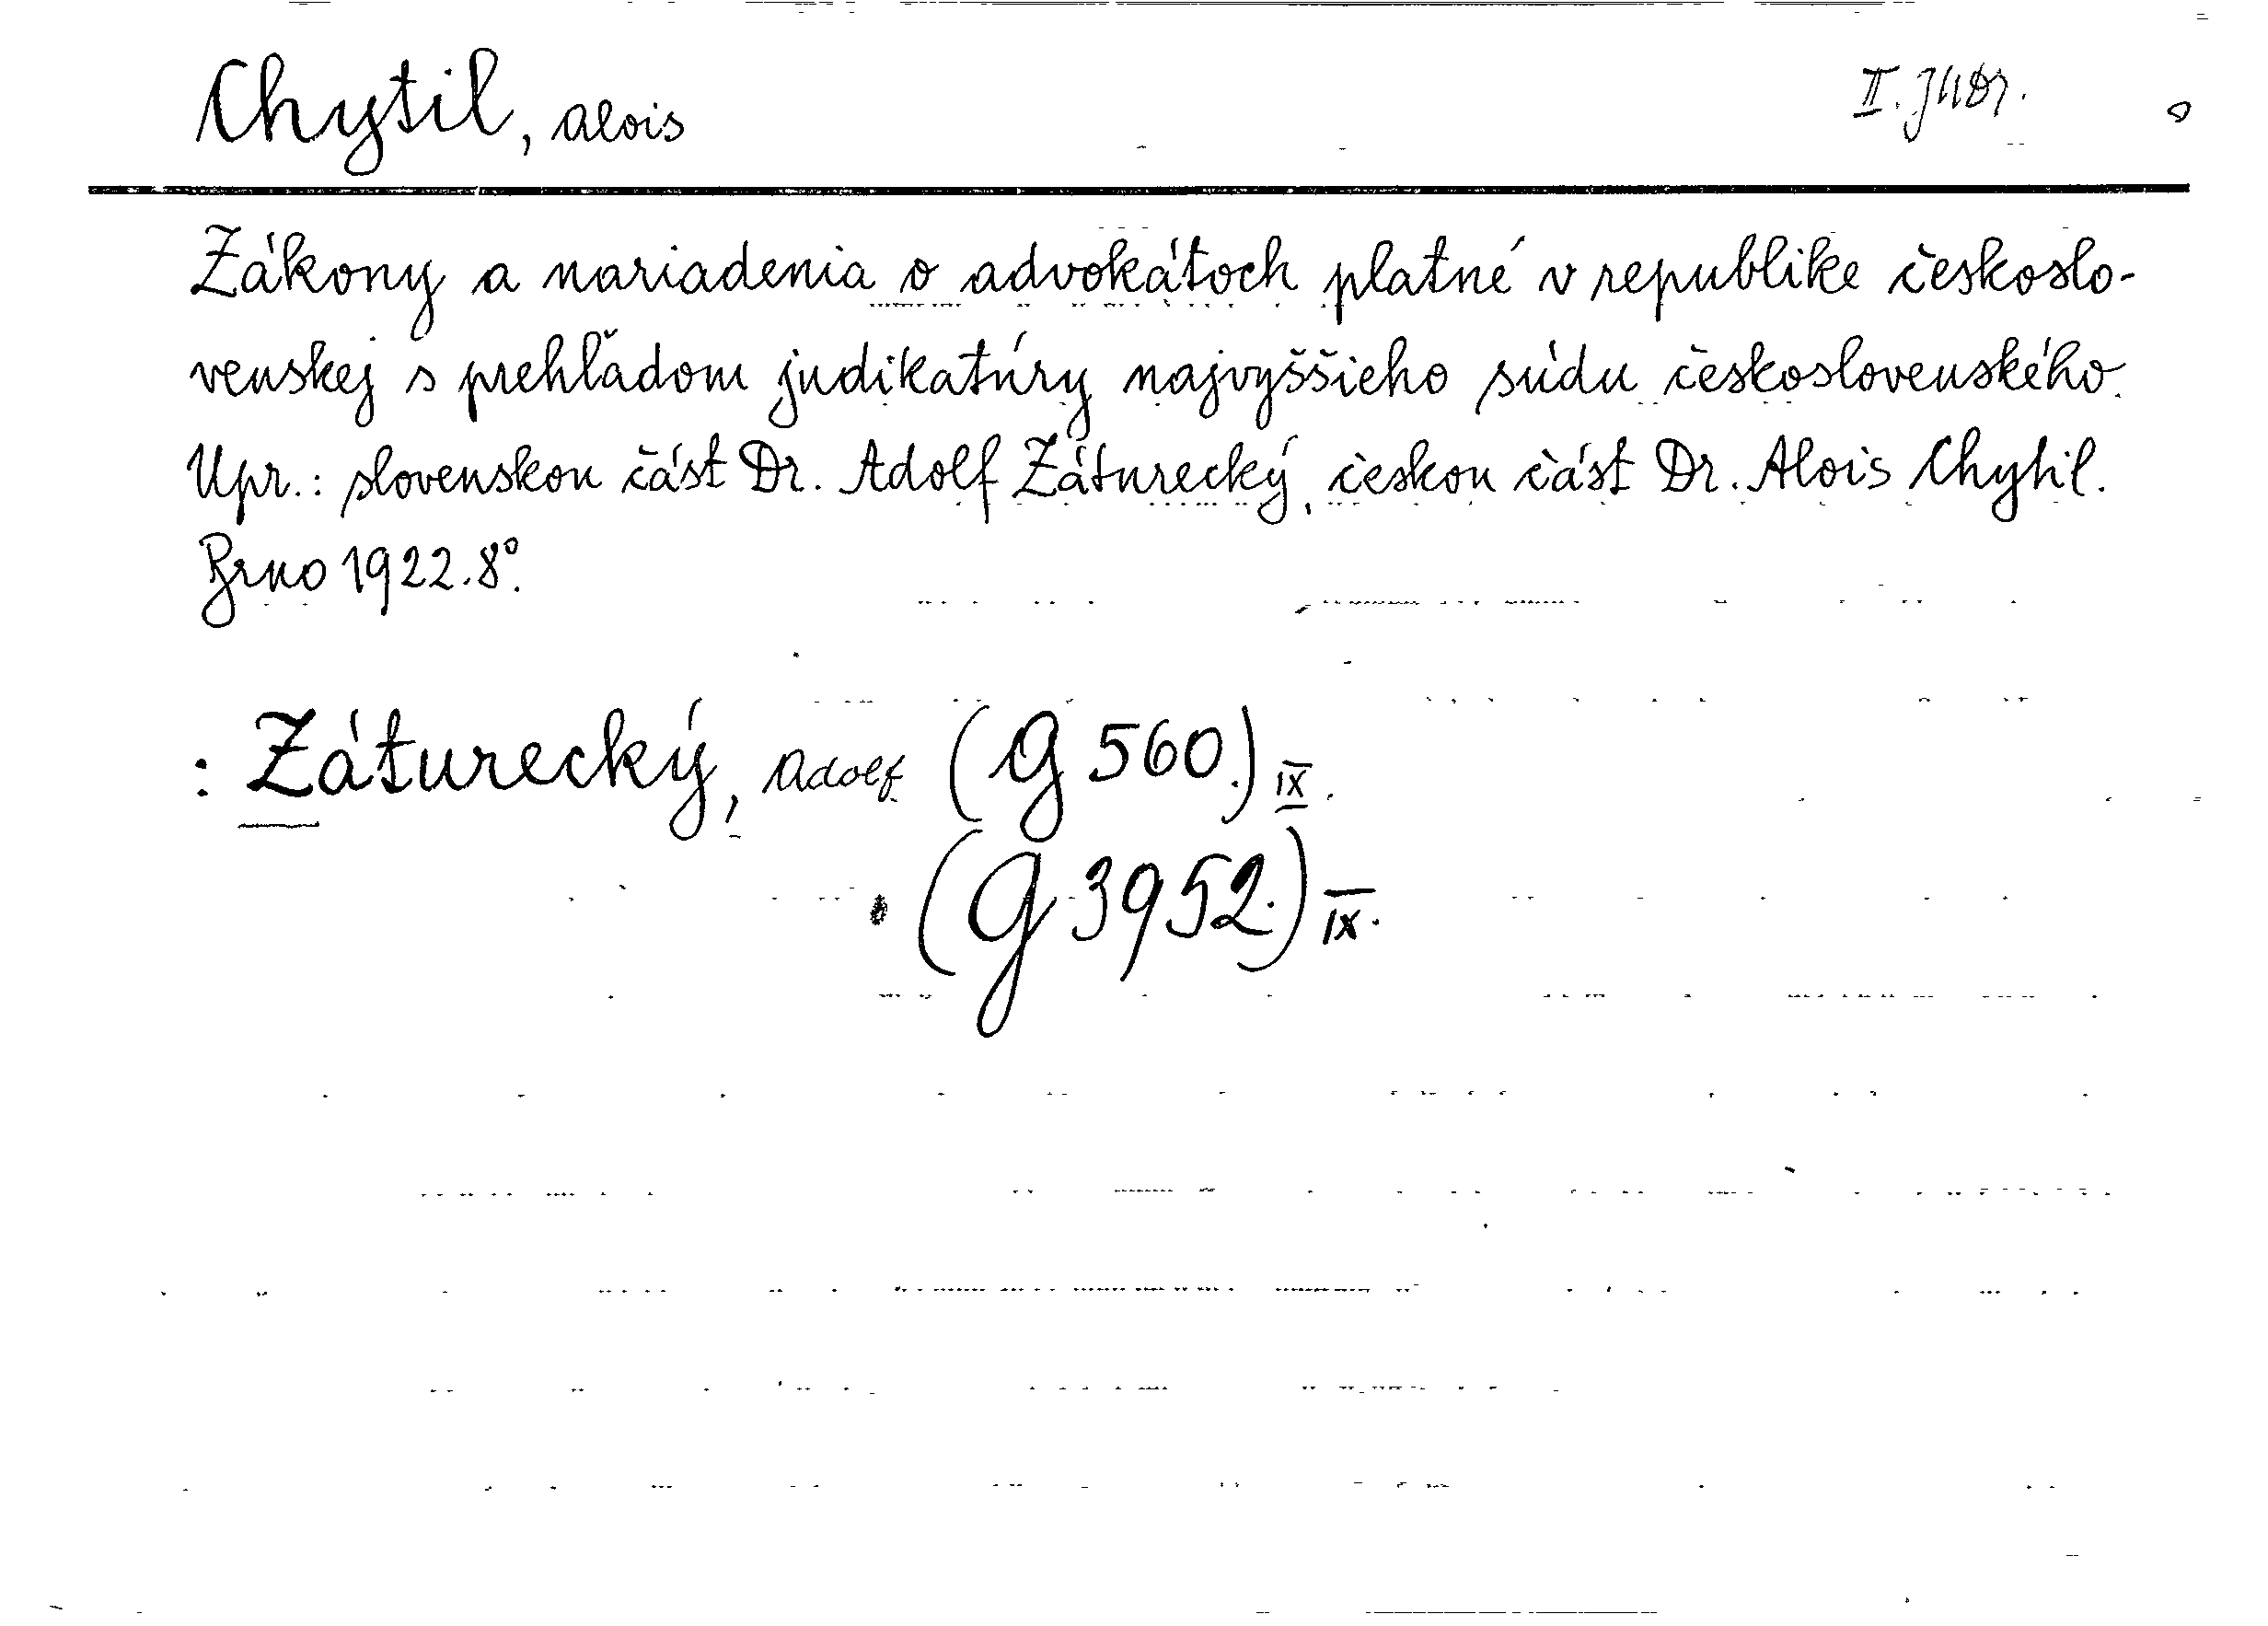 Chytil, Alois
II. JUDr.
Zákony a nariadenia o advokátoch platné v republike českoslo-
venskej s prehľadom judikatúry najvyššieho súdu československého.
Upr.: slovenskou část Dr. Adolf Záturecký, českou část Dr. Alois Chytil.
Brno 1922. 8°.
: Záturecký, Adolf (G 560.) IX.
(G 3952.) IX.